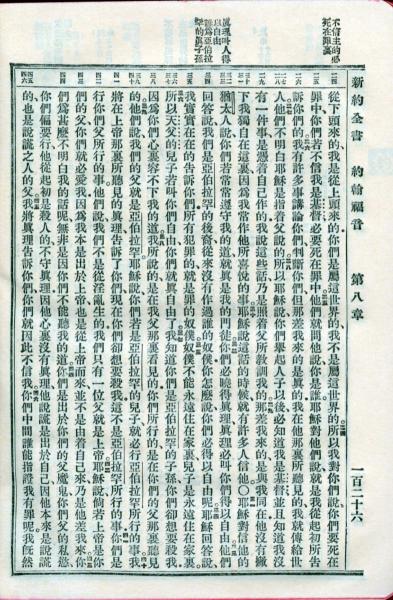 新約全書　約翰福音　第八章　一百二十六
不信主的必
死在罪裏
眞理叫人得
以自由
誰爲亞伯拉
罕的眞子孫
從下頭來的我是從上頭來的你們是屬這世界的我不是屬這世界的所以我對你們說你們要死在
罪中你們若不信我是基督必要死在罪中他們就問他說你是誰耶穌對他們說就是我從起初所告
訴你們的我有許多事講論你們判斷你們但那差我來的是眞的我在他那裏所聽見的我就傳給世
人他們不明白耶穌是指着父說的所以耶穌說你們舉起人子以後必知道我是基督並且知道我沒
有一件事是憑着自己作的我說這些話乃是照着父所教訓我的那差我來的是與我同在他沒有撇
下我獨自在這裏因爲我常作他所喜悅的事耶穌說這話的時候就有許多人信他○耶穌對信他的
猶太人說你們若常常遵守我的道就眞是我的門徒你們必曉得眞理眞理必叫你們得以自由他們
回答說我們是亞伯拉罕的後裔從來沒有作過誰的奴僕你怎麽說你們必得以自由呢耶穌回答說
我實實在在的告訴你們所有犯罪的就是罪的奴僕奴僕不能永遠住在家裏兒子是永遠住在家裏
所以天父的兒子若叫你們自由你們就眞自由了我知道你們是亞伯拉罕的子孫你們卻想要殺我
因爲你們心裏容不下我的道我所說的是在我父那裏看見的你們所行的是在你們的父那裏聽見
的他們說我們的父是亞伯拉罕耶穌說你們若是亞伯拉罕的兒子就必行亞伯拉罕所行的事我
將在上帝那裏所聽見的眞理告訴了你們現在你們卻想要殺我這不是亞伯拉罕所行的事你們是
行你們父所行的事他們說我們不是從淫亂生的我們只有一位父就是上帝耶穌說倘若上帝是你
們的父你們就必愛我因爲我本是出於上帝也是從上帝而來並不是由着自己來乃是他差我來你
們爲甚麽不明白我的話呢無非是因你們不能聽我的道你們是出於你們的父魔鬼你們父的私慾
你們偏要行他從起初是殺人的不守眞理因他心裏沒有眞理他說謊是出於自己因他本來是說謊
的也是說謊之人的父我將眞理告訴你們你們就因此不信我你們中間誰能指證我有罪呢我旣然